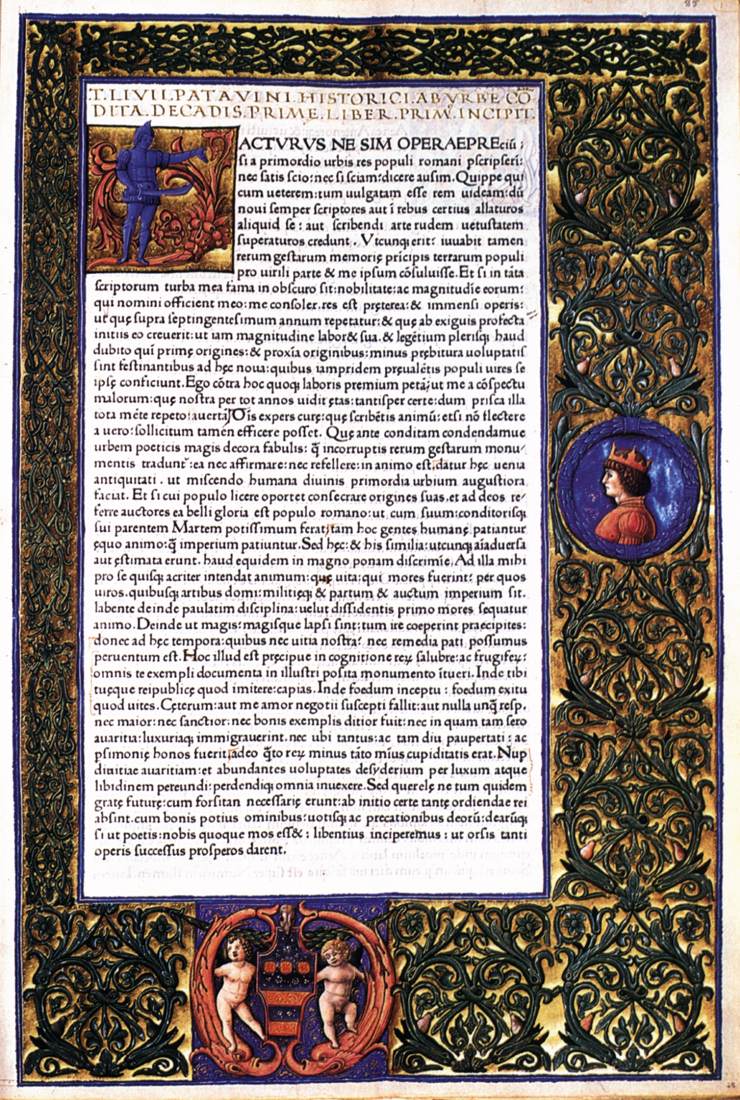 T. LIVII. PATAVINI. HISTORICI. AB VRBE CŌ
DITA. DECADIS. PRIME. LIBER. PRIM⁹. INCIPIT.
ACTVRVS NE SIM OPERAEPREciū;
si a primordio urbis res populi romani pscripseri:
nec satis scio: nec si sciam: dicere ausim. Quippe qui
cum ueterem: tum uulgatam esse rem uideam: dū
noui semper scriptores aut ī rebus certius allaturos
aliquid se: aut scribendi arte rudem uetustatem
superaturos credunt. Vtcunq; erit: iuuabit tamen
rerum gestarum memorię prīcipis terrarum populi
pro uirili parte & me ipsum cōsuluisse. Et si in tāta
scriptorum turba mea fama in obscuro sit: nobilitate: ac magnitudīe eorum:
qui nomini officient meo: me consoler. res est pręterea: & immensi operis:
ut quę supra septingentesimum annum repetatur: & quę ab exiguis profecta
initiis eo creuerit: ut iam magnitudine labor& sua. & legētium plerisq; haud
dubito qui primę origines: & proxīa originibus: minus prębitura uoluptatis
sint festinantibus ad hęc noua: quibus iampridem preualētis populi uires se
ipsę conficiunt. Ego cōtra hoc quoq; laboris premium petā: ut me a cōspectu
malorum: quę nostra per tot annos uidit ętas: tantisper certe: dum prisca illa
tota mēte repeto: auertā. Ōis expers curę: quę scribētis animū: etsi nō flectere
a uero: sollicitum tamen efficere posset. Quę ante conditam condendamue
urbem poeticis magis decora fabulis: q̄ incorruptis rerum gestarum monu-
mentis tradunt᷑: ea nec affirmare: nec refellere: in animo est. datur hęc uenia
antiquitati. ut miscendo humana diuinis primordia urbium augustiora
faciat. Et si cui populo licere oportet consecrare origines suas. et ad deos re-
ferre auctores ea belli gloria est populo romano: ut cum suum: conditorisq;
sui parentem Martem potissimum ferat: tam hoc gentes humanę patiantur
ęquo animo: q̄ imperium patiuntur. Sed hęc: & his similia: utcunq; aīaduersa
aut ęstimata erunt. haud equidem in magno ponam discrimīe. Ad illa mihi
pro se quisq; acriter intendat animum: quę uita: qui mores fuerint: per quos
uiros. quibusq; artibus domi: militięq; & partum & auctum imperium sit.
labente deinde paulatim disciplina: uelut dissidentis primo mores sequatur
animo. Deinde ut magis: magisque lapsi sint: tum ire coeperint praecipites:
donec ad hęc tempora: quibus nec uitia nostra: nec remedia pati possumus
peruentum est. Hoc illud est pręcipue in cognitione reꝝ salubre: ac frugifeꝝ:
omnis te exempli documenta in illustri posita monumento ītueri. Inde tibi
tuęque reipublicę quod imitere: capias. Inde foedum inceptu: foedum exitu
quod uites. Cęterum: aut me amor negotii suscepti fallit: aut nulla unq̄ resp.
nec maior: nec sanctior: nec bonis exemplis ditior fuit: nec in quam tam sero
auaritia: luxuriaq; immigrauerint. nec ubi tantus: ac tam diu paupertati: ac
psimonię honos fuerit. adeo q̄to reꝝ minus tāto mīus cupiditatis erat. Nup
diuitiae auaritiam: et abundantes uoluptates desyderium per luxum atque
libidinem pereundi: perdendiq; omnia inuexere. Sed querelę ne tum quidem
gratę futurę: cum forsitan necessarię erunt: ab initio certe tantę ordiendae rei
absint. cum bonis potius ominibus: uotisq; ac precationibus deorū: dearūq;
si ut poetis: nobis quoque mos ess&: libentius inciperemus: ut orsis tanti
operis successus prosperos darent.